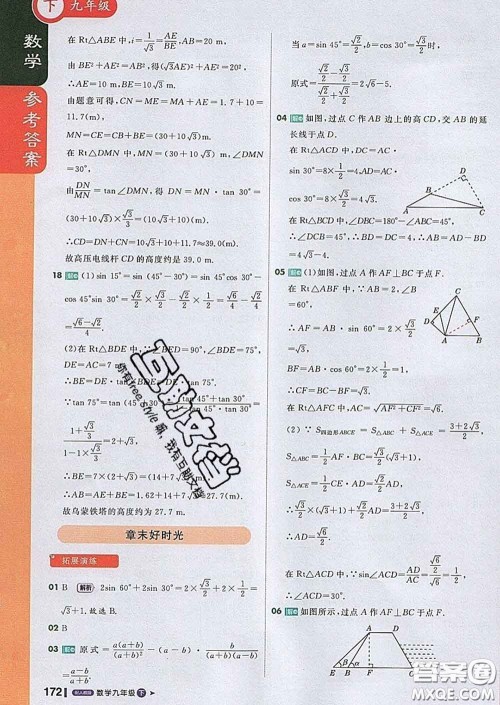 下 九年级
数学
参考答案
在 Rt△ABE 中,i=1/√3=AE/BE,AB=20 m,
由 BE²+AE²=AB²,得(√3AE)²+AE²=20²,
∴AE=10 m,BE=10√3 m.
由题意可得,CM=CH+MH=CH+AE=1.7+10=
11.7(m),
MN=CE=CB+BE=(30+10√3)m.
在 Rt△DMN 中,MN=(30+10√3)m,∠DMN
=30°.
由DN/MN=tan∠DMN,得 DN=MN·tan 30°=
(30+10√3)×√3/3=(10+10√3)m.
∴CD=DN+CN=10√3+10+11.7≈39.0(m).
故高压电线杆 CD 的高度约是 39.0 m.
18 (1)sin 15°=sin(45°-30°)=sin 45°cos 30°-
cos 45°sin 30°=√2/2×√3/2-√2/2×1/2=√6/4-√2/4
=(√6-√2)/4.
(2)在 Rt△BDE 中,∵∠BED=90°,∠BDE=75°,
DE=AC=7
∴BE=DE·tan∠BDE=DE·tan 75°.
∵tan 75°=tan(45°+30°)=(tan 45°+tan 30°)/(1-tan 45°tan 30°)=
=2+√3,
∴BE=7×(2+√3)=14+7√3.
∴AB=AE+BE=1.62+14+7√3≈27.7(m).
故乌蒙铁塔的高度约为 27.7 m.
章末好时光
拓展演练
01 B 解析 2sin 60°+2sin 30°=2×√3/2+2×1/2=
√3+1.故选 B.
02 B
03 原式=a(a+b)/(a+b)²-(a-b)·b/((a+b)(a-b))=
(a-b)/(a+b).
当 a=sin 45°=√2/2,b=
原式=
=2√6-5.
04 如图,过点 C 作 AB 边上的高 CD,交 AB 的延
长线于点 D.
在 Rt△ACD 中,DC=AC·
sin 30°=8×1/2=4,AD=AC·
cos 30°=8×√3/2=4√3.
A B C D
在 Rt△BCD 中,∠DBC=180°-∠ABC=45°,
∴∠DCB=45°.∴BD=DC=4.∴AB=AD-BD
=4√3-4.
05 (1)如图,过点 A 作 AF⊥BC 于点 F.
在 Rt△ABF 中,∵∠ABC=60°,
AB=2,
∴AF=AB·sin 60°=2×√3/2=√3,
BF=AB·cos 60°=2×1/2=1.
在 Rt△AFC 中,∵∠ACB=45°,
∴CF=AF=√3.∴AC=√(AF²+CF²)=√6.
(2)∵S四边形ABCE=S△ABC+S△ACE=(3+2√3)/2,
S△ABC=1/2 AF·BC=(3+√3)/2,
S△ACE=1/2 AC·
∴
∴
在 Rt△ACD 中,sin∠ACD=AD/AC=
∴∠ACD=30°.
06 如图所示,过点 A 作 AF⊥BC 于点 F.
互助文档
你有free style 嗎,我有互助文档
172 数学九年级 下
答案圈
MXQE.COM